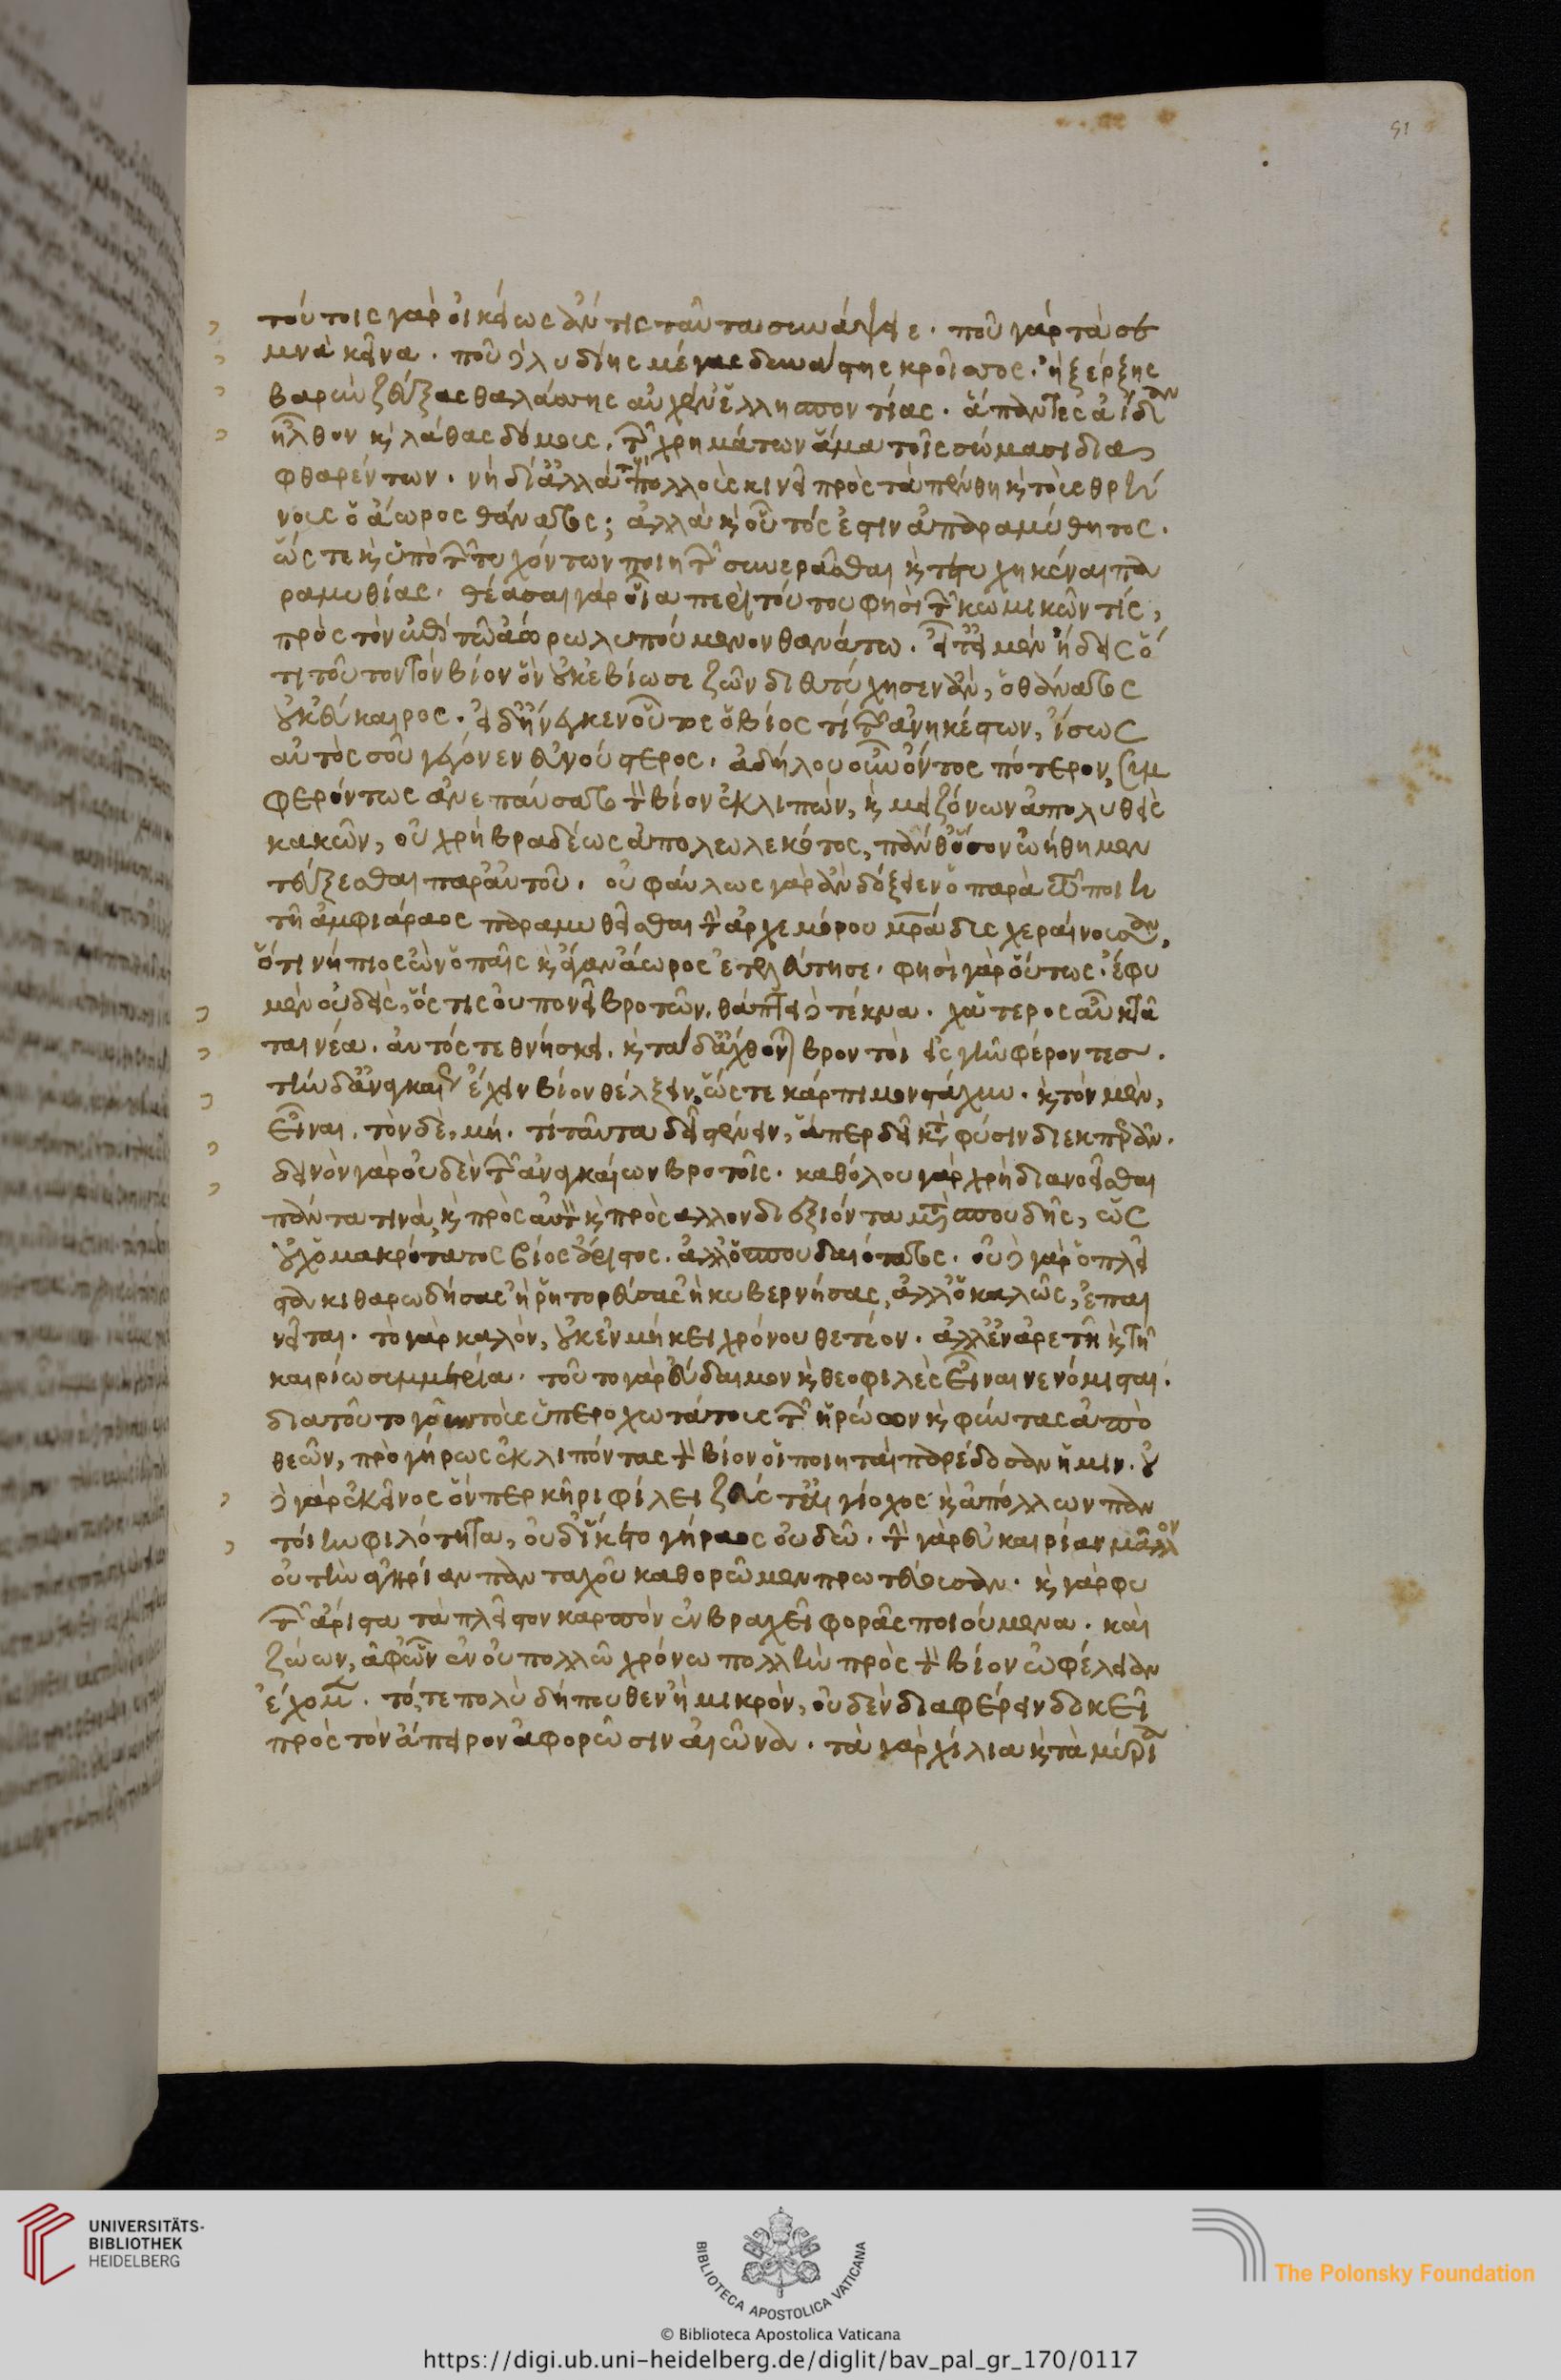 51
τούτοις γὰρ οἰκείως ἄν τις ταῦτα συνάψειε. ποῦ γὰρ τὰ σε
μνὰ κεῖνα. ποῦ δὲ λυδίης μέγας δυνάστης κροῖσος. ἢ ξέρξης
βαρὺν ζεύξας θαλάσσης αὐχέν' ἑλλησποντίας. ἅπαντες ἀΐδαν
ἦλθον κ λάθας δόμους. τῶν χρημάτων ἅμα τοῖς σώμασι δια
φθαρέντων. νὴ δί' ἀλλὰ τοὺς πολλοὺς κινεῖ πρὸς τὰ πένθη κ τοὺς θρή
νους ὁ ἄωρος θάνατος; ἀλλὰ κ οὗτός ἐστιν ἀπαραμύθητος.
ὥς τε κ ὑπὸ τῶν τυχόντων ποιητῶν συνεωρᾶσθαι κ τετυχηκέναι πα
ραμυθίας. θέασαι γὰρ οἷα περὶ τούτου φησὶ τῶν κωμικῶν τίς,
πρὸς τὸν ἐπὶ τῶ ἀώρω λυπούμενον θανάτω. εἶτ' εἰ μὲν ἤδεις ὅ
τι τοῦτον τὸν βίον ὃν οὐκ ἐβίωσε ζῶν διευτύχησεν ἄν, ὁ θάνατος
οὐκ εὔκαιρος. εἰ δ' ἤνεγκεν οὗτος ὁ βίος τὶ τῶν ἀνηκέστων, ἴσως
αὐτὸς σοῦ γέγονεν εὐνούστερος. ἀδήλου οὖν ὄντος πότερον συμ
φερόντως ἀνεπαύσατο τὸν βίον ἐκλιπών, κ μειζόνων ἀπολυθεὶς
κακῶν, οὐ χρὴ βραδέως ἀπολελωκότος, πάνθ' ὅσον ὠήθημεν
τεύξεσθαι παρ' αὐτοῦ. οὐ φαύλως γὰρ ἂν δόξειεν ὁ παρὰ τῶ ποιη
τῆ ἀμφιάραος παραμυθεῖσθαι τὴν ἀρχεμόρου μρα δυσχεραίνουσαν,
ὅτι νήπιος ὢν ὁ παῖς κ ἄγαν ἄωρος ἐτελεύτησε. φησὶ γὰρ οὕτως. ἔφυ
μὲν οὐδείς, ὅς τις οὐ πονεῖ βροτῶν. θάπτει δὲ τέκνα. χἄτερος αὖ κτᾶ
ται νέα. αὐτός τε θνήσκει. κ τάδ' ἄχθονται βροντοὶ εἰς γῆν φέροντες.
τὴν δ' ἀναγκαίως ἔχειν βίον θέλξειν ὥς τε κάρπιμον στάχυν. κ τὸν μὲν,
εἶναι. τὸν δὲ, μή. τί ταῦτα δεῖ στένειν, ἅπερ δεῖ κτ φύσιν διεκπερᾶν.
δεινὸν γὰρ οὐδὲν τῶν ἀναγκαίων βροτοῖς. καθόλου γὰρ χρὴ διανοεῖσθαι
πάντα τινὰ κ πρὸς αὑτὸν κ πρὸς ἄλλον διεξιόντα μετὰ σπουδῆς, ὡς
οὐχ' ὁ μακρότατος βίος ἄριστος. ἀλλ' ὁ σπουδαιότατος. οὐδὲ γὰρ ὁ πλεῖ
στα κιθαρωδήσας ἢ ῥητορεύσας ἢ κυβερνήσας, ἀλλ' ὁ καλῶς, ἐπαι
νεῖται. τὸ γὰρ καλὸν, οὐκ ἐν μήκει χρόνου θετέον. ἀλλ' ἐν ἀρετῆ κ τῆ
καιρίω συμμετρία. τοῦτο γὰρ εὔδαιμον κ θεοφιλὲς εἶναι νενόμισται.
διὰ τοῦτο γοῦν τοὺς ὑπεροχωτάτους τῶν ἡρώων κ φύντας ἀπὸ
θεῶν, πρὸ γήρως ἐκλιπόντας τὸν βίον οἱ ποιηταὶ παρέδοσαν ἡμῖν. οὐ
δὲ γὰρ ἐκεῖνος ὅν περ κῆρι φίλει ζεὺς τ' αἰγίοχος κ ἀπόλλων παν
τοίην φιλότητα, οὐδ' ἵκετο γήραος οὐδόν. τὴν γὰρ εὐκαιρίαν μᾶλλον
οὐ τὴν εὐγηρίαν πανταχοῦ καθορῶμεν πρωτεύουσαν. κ γὰρ φυ
τῶν ἄριστα τὰ πλεῖστον καρπὸν ἐν βραχεῖ φορᾶς ποιούμενα. καὶ
ζώων, ἀφ' ὧν ἐν οὐ πολλῶ χρόνω πολλὴν πρὸς τὸν βίον ὠφέλειαν
ἔχομεν. τό, τε πολὺ δήπουθεν ἢ μικρὸν, οὐδὲν διαφέρειν δοκεῖ
πρὸς τὸν ἄπειρον ἀφορῶσιν αἰῶνα. τὰ γὰρ χίλια κ τὰ μύρια
UNIVERSITÄTS-
BIBLIOTHEK
HEIDELBERG
BIBLIOTECA APOSTOLICA VATICANA
The Polonsky Foundation
© Biblioteca Apostolica Vaticana
https://digi.ub.uni-heidelberg.de/diglit/bav_pal_gr_170/0117